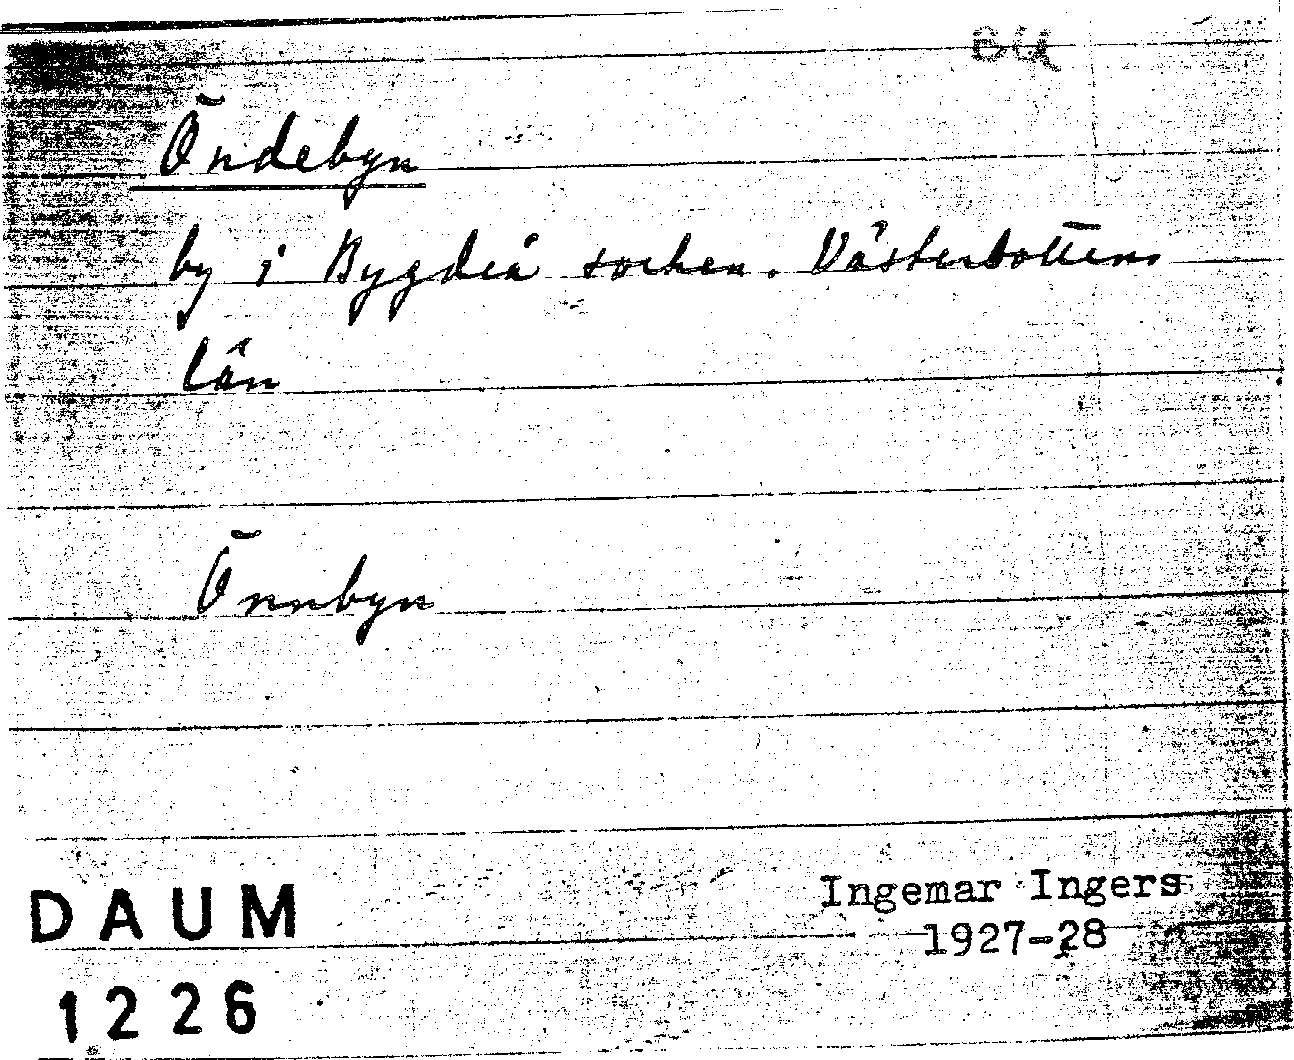 Bå
Öndebyn
by i Bygdeå socken. Västerbottens
län
Önnbyn
DAUM
1226
Ingemar Ingers
1927-28